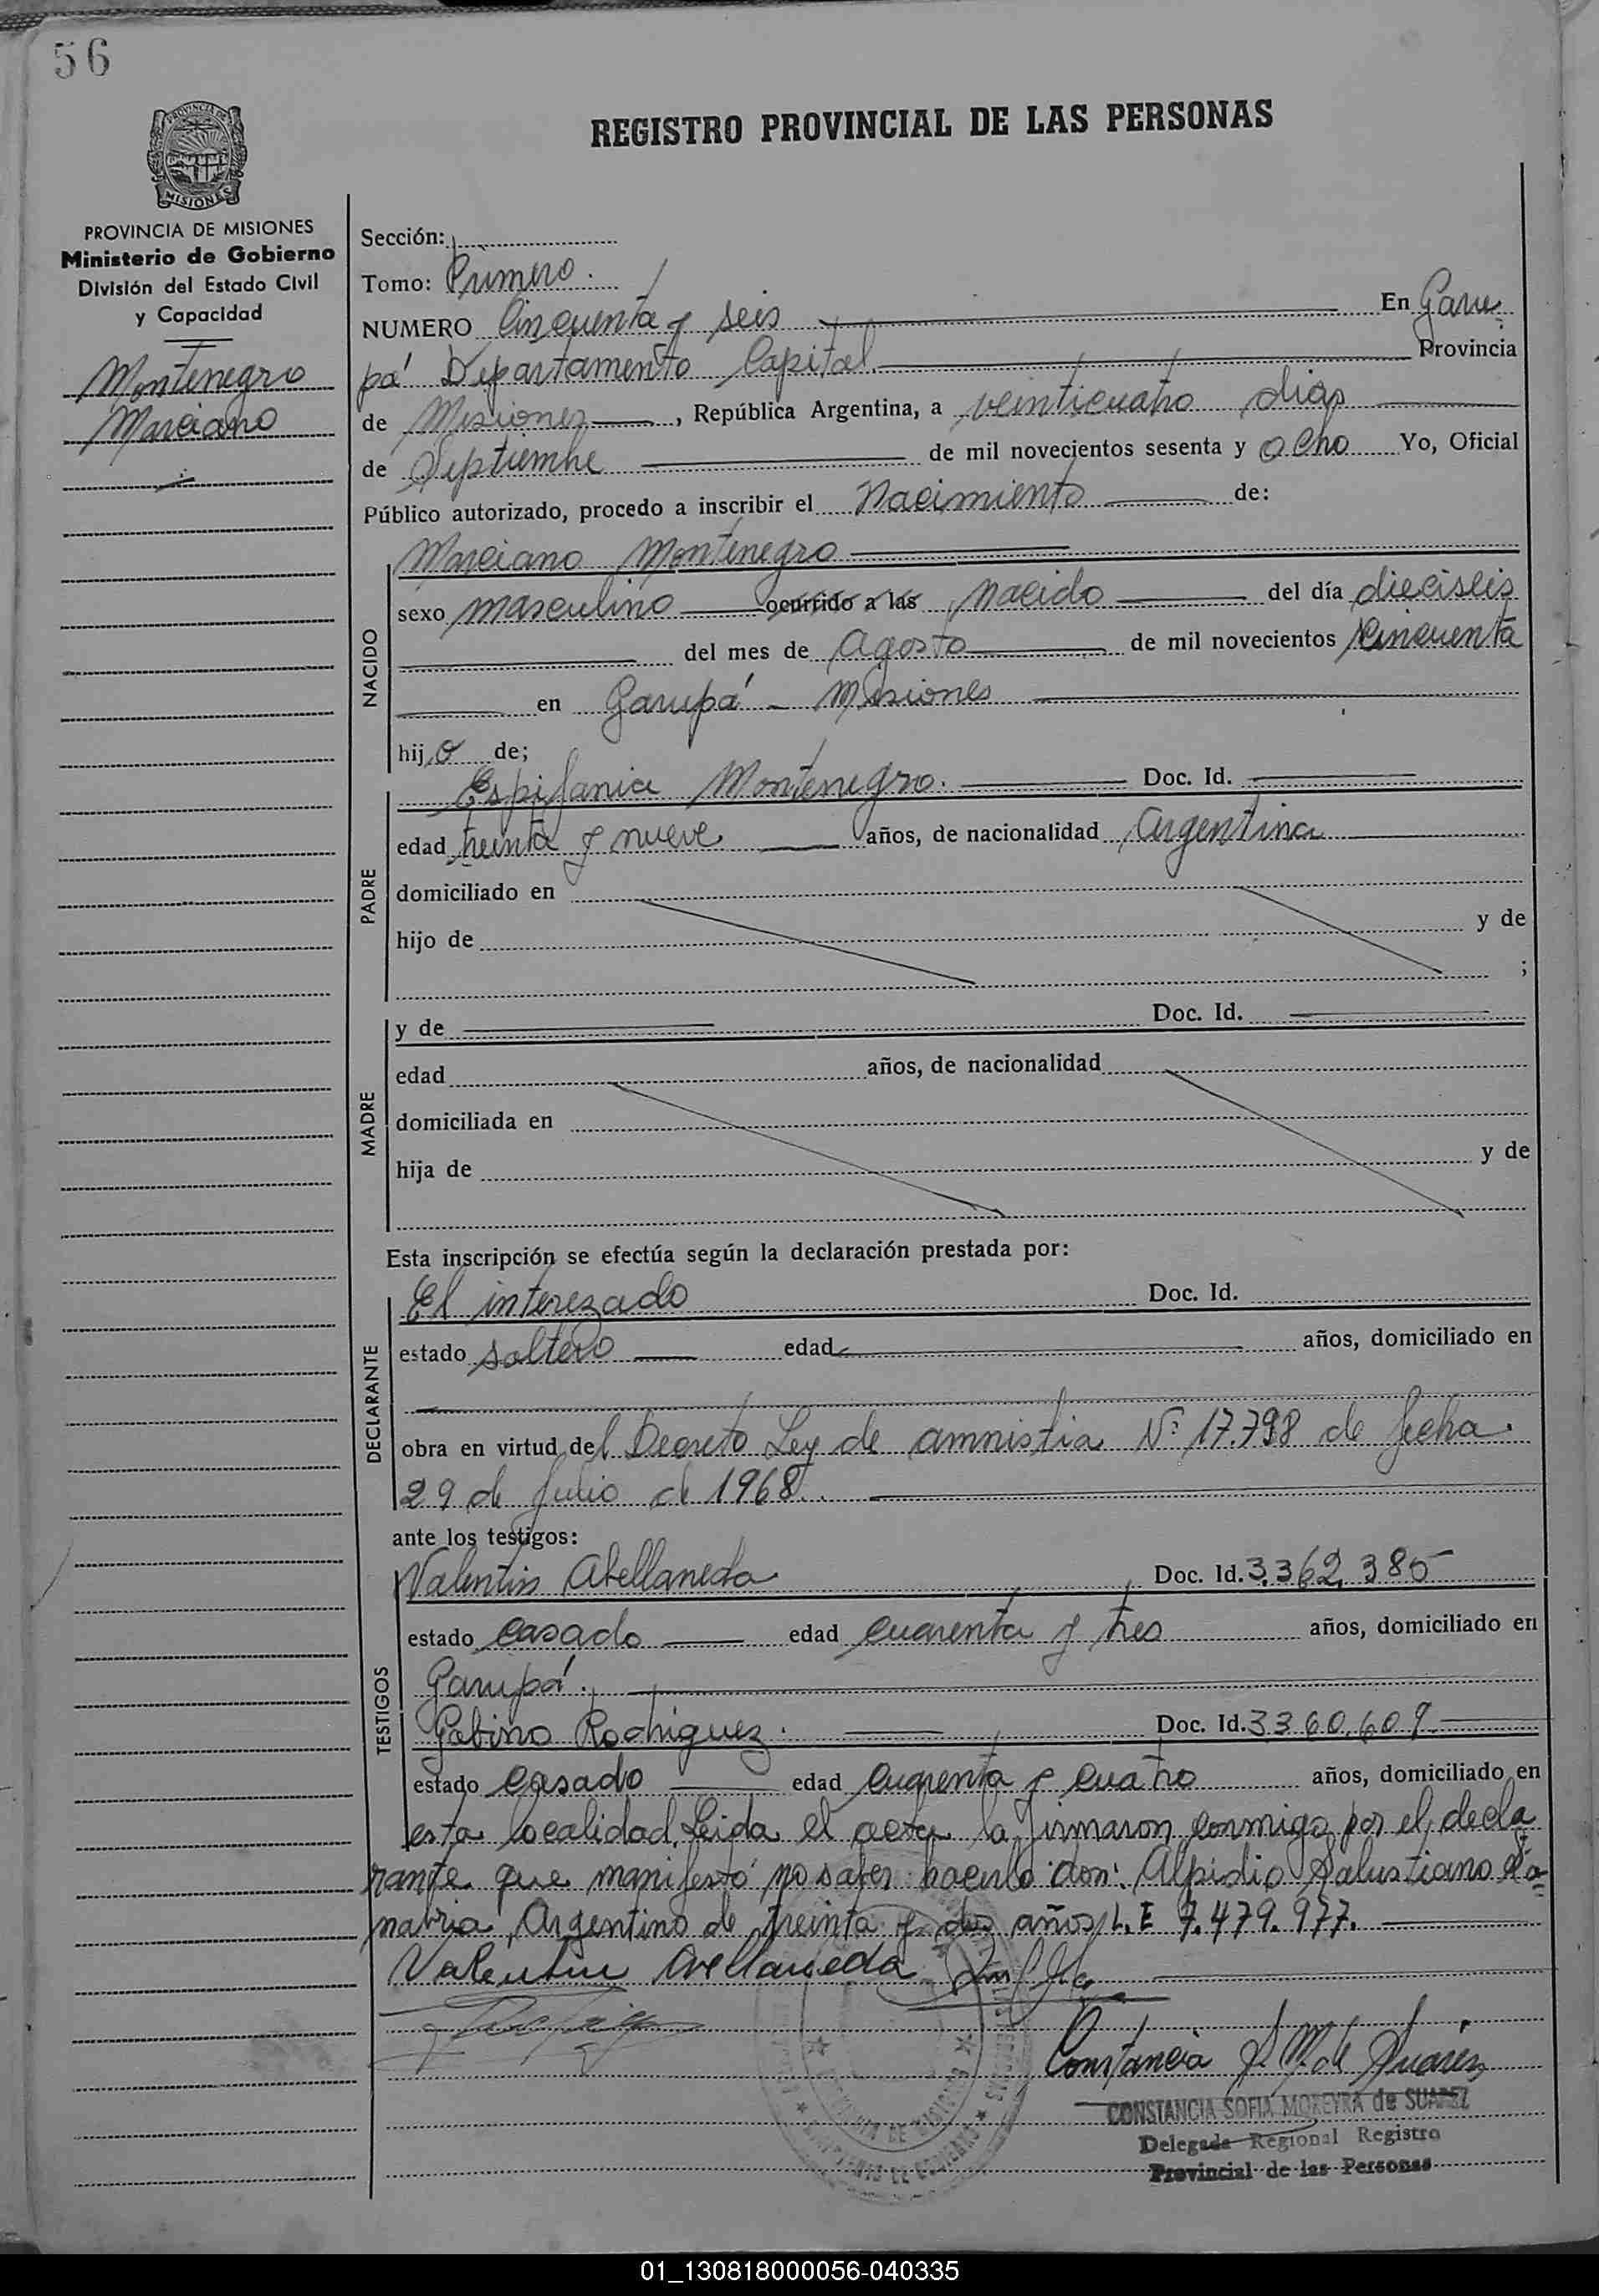 56
PROVINCIA DE
MISIONES
REGISTRO PROVINCIAL DE LAS PERSONAS
PROVINCIA DE MISIONES
Ministerio de Gobierno
División del Estado Civil
y Capacidad
Montenegro
Marciano
Sección:
Tomo: Primero.
NUMERO Cincuenta y seis En Garu=
pá Departamento Capital Provincia
de Misiones, República Argentina, a veinticuatro dias
de Septiembre de mil novecientos sesenta y ocho Yo, Oficial
Público autorizado, procedo a inscribir el Nacimiento de:
Marciano Montenegro
NACIDO
sexo masculino ocurrido a las nacido del día dieciseis
del mes de Agosto de mil novecientos cincuenta
en Garupá - Misiones
hijo de;
PADRE
Espifania Montenegro. Doc. Id.
edad treinta y nueve años, de nacionalidad Argentina
domiciliado en
hijo de y de
;
MADRE
y de Doc. Id.
edad años, de nacionalidad
domiciliada en
hija de y de
Esta inscripción se efectúa según la declaración prestada por:
DECLARANTE
El interezado Doc. Id.
estado soltero edad años, domiciliado en
obra en virtud del Decreto Ley de amnistia Nº 17.798 de fecha
29 de Julio de 1968.
ante los testigos:
TESTIGOS
Valentin Abellaneda Doc. Id. 3.362.385
estado casado edad cuarenta y tres años, domiciliado en
Garupá.
Gabino Rodriguez. Doc. Id. 3.360.609
estado casado edad cuarenta y cuatro años, domiciliado en
esta localidad. Leida el acta la firmaron conmigo por el decla
rante que manifestó no saber hacerlo don: Alpidio Salustiano Sa=
nabria, Argentino de treinta y dos años L.E 7.479.977.
Valentin Avellaneda
Constancia S. M. de Suárez
CONSTANCIA SOFIA MOREYRA de SUAREZ
Delegada Regional Registro
Provincial de las Personas
01_130818000056-040335